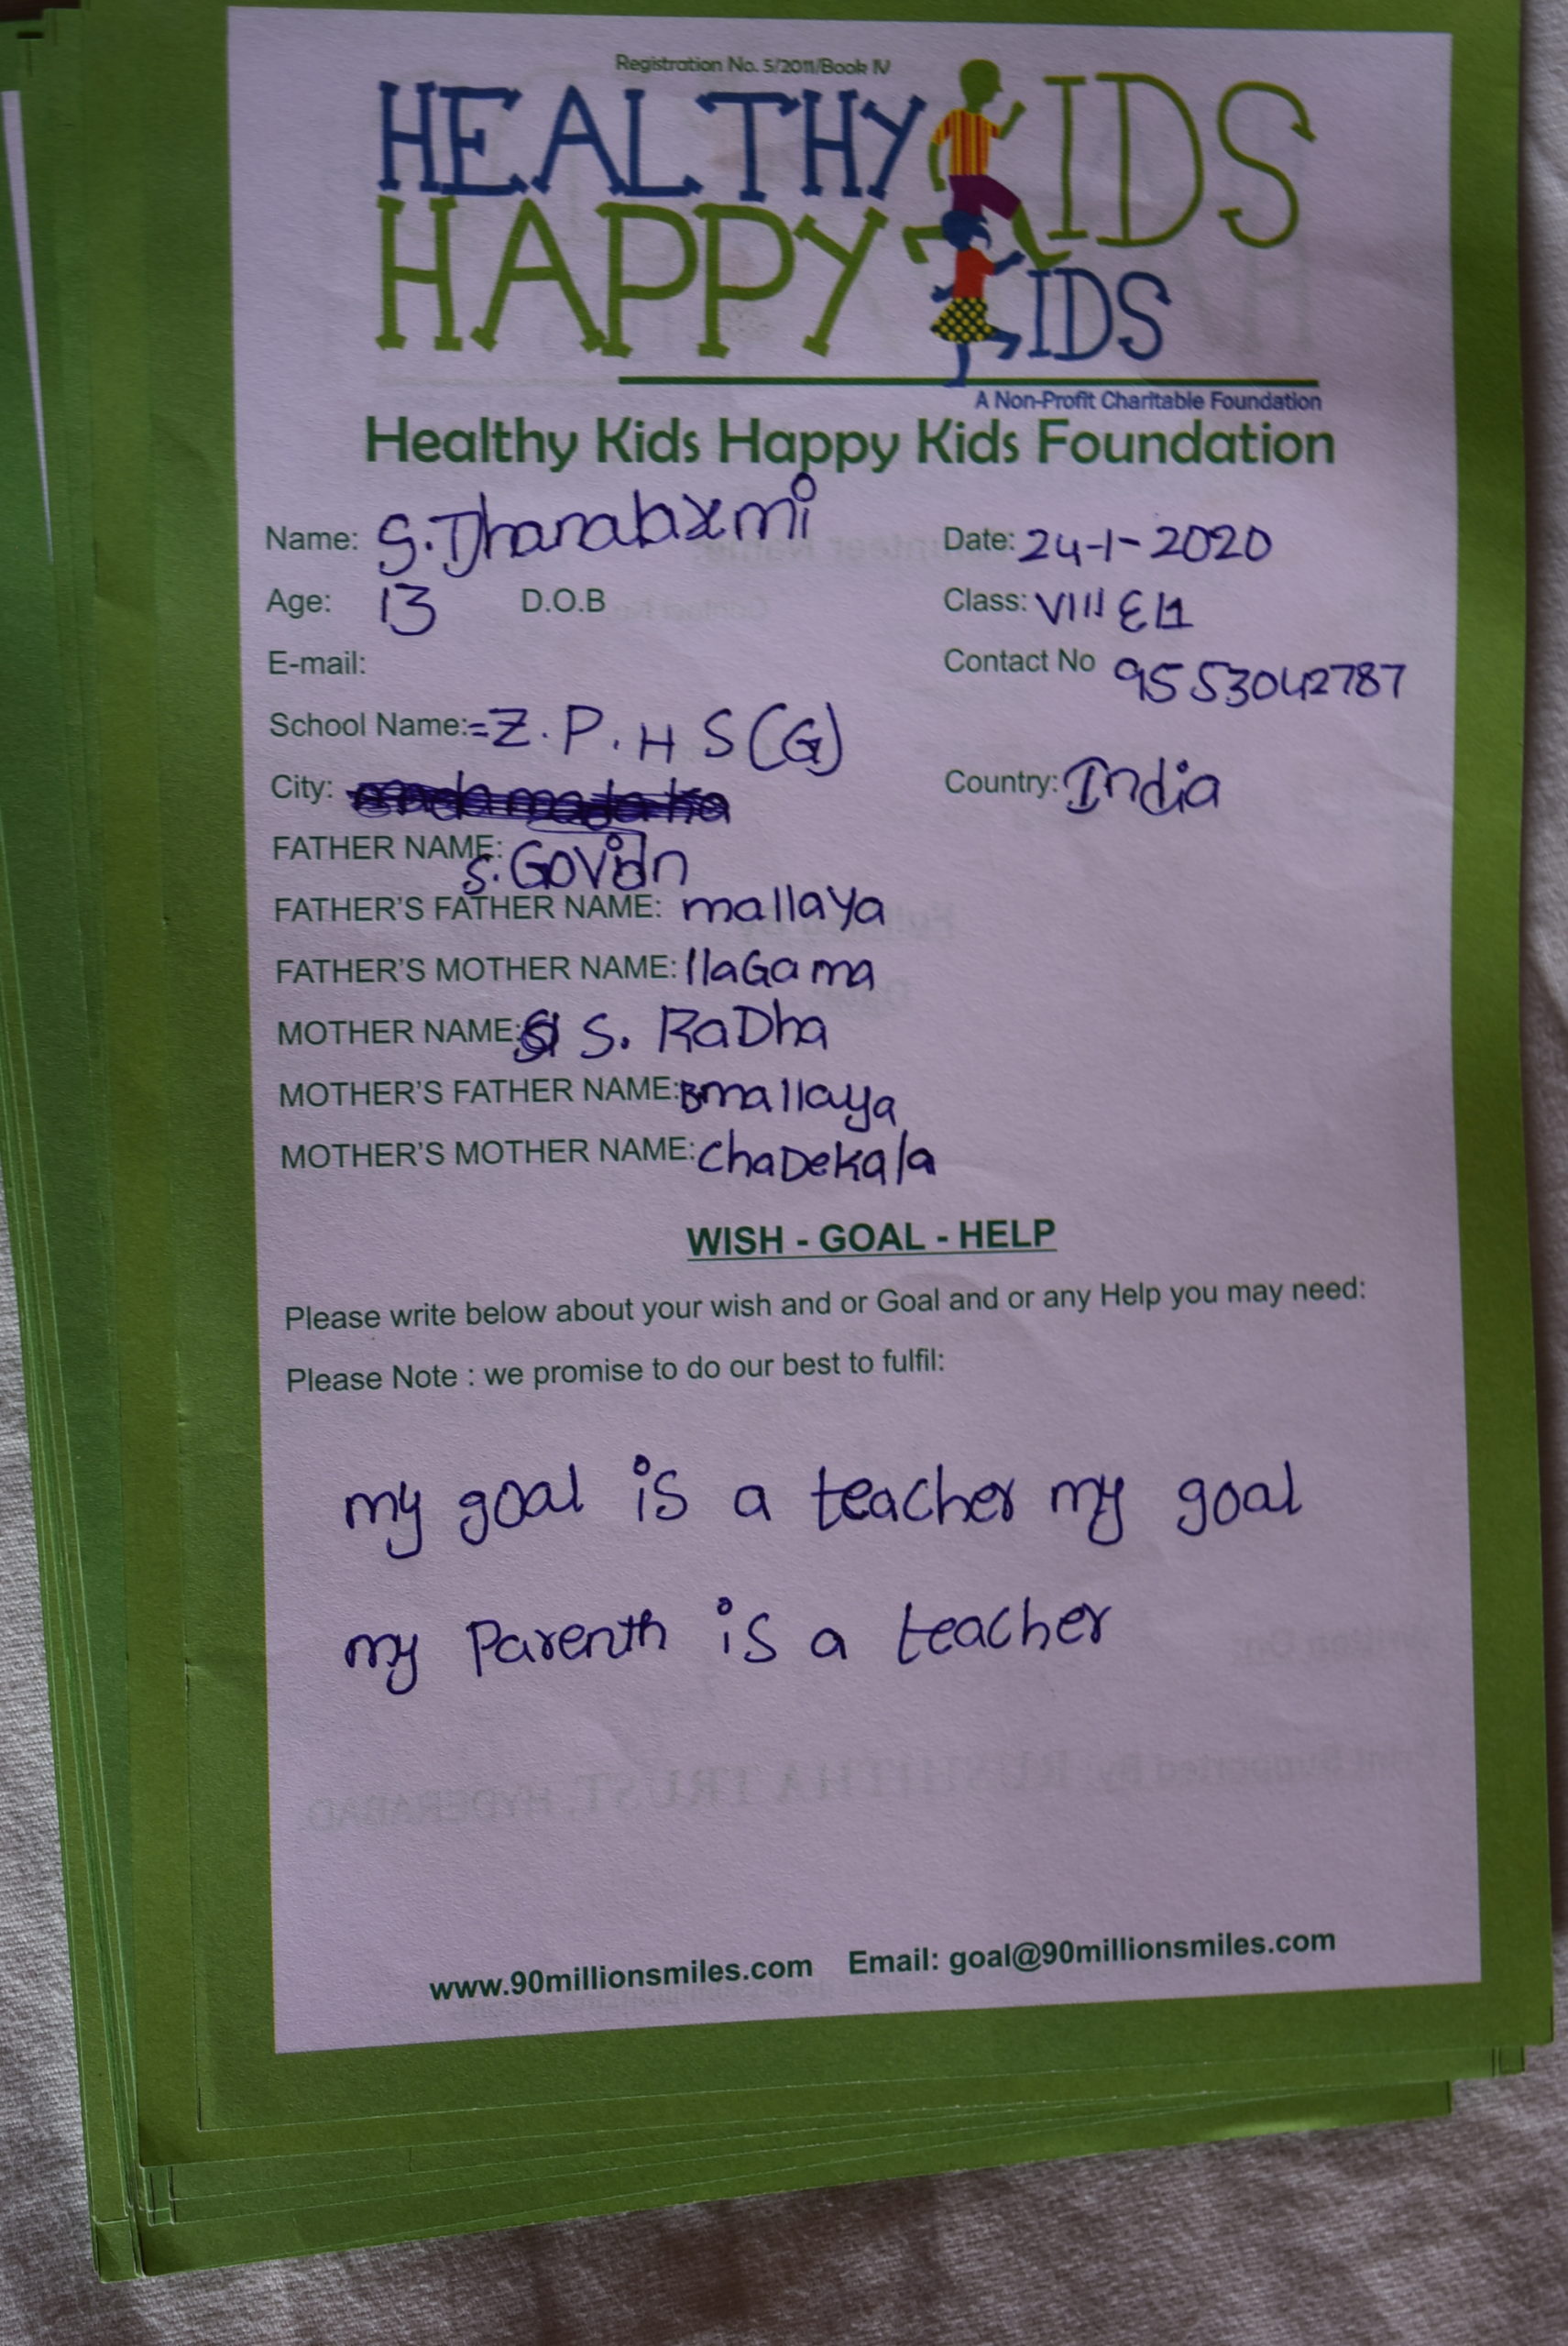 Registration No. 5/2011/Book IV
HEALTHY KIDS
HAPPY KIDS
A Non-Profit Charitable Foundation
Healthy Kids Happy Kids Foundation
Name: S.Dhanalaxmi Date: 24-1-2020
Age: 13 D.O.B Class: VIII
E-mail: Contact No 9553042787
School Name:=Z.P.H S(G)
City: Country: India
FATHER NAME: S.Govidn
FATHER'S FATHER NAME: mallaya
FATHER'S MOTHER NAME: llaGama
MOTHER NAME: S. RaDha
MOTHER'S FATHER NAME: mallaya
MOTHER'S MOTHER NAME: ChaDekala
WISH - GOAL - HELP
Please write below about your wish and or Goal and or any Help you may need:
Please Note : we promise to do our best to fulfil:
my goal is a teacher my goal
my Parenth is a teacher
www.90millionsmiles.com Email: goal@90millionsmiles.com